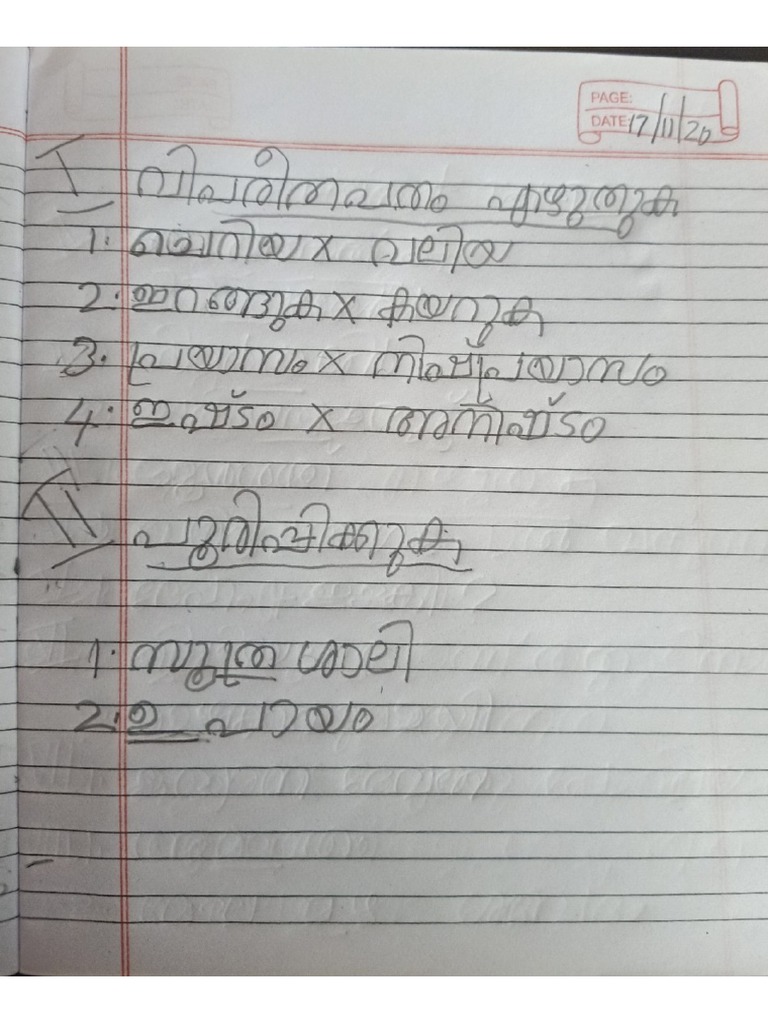 PAGE:
DATE: 17/11/20
I വിപരീതപദം എഴുതുക
1. ചെറിയ x വലിയ
2. ഇറങ്ങുക x കയറുക
3. പ്രയാസം x നിഷ്പ്രയാസം
4. ഇഷ്ടം x അനിഷ്ടം
II പൂരിപ്പിക്കുക
1. സൂത്രശാലി
2. ഉപായം